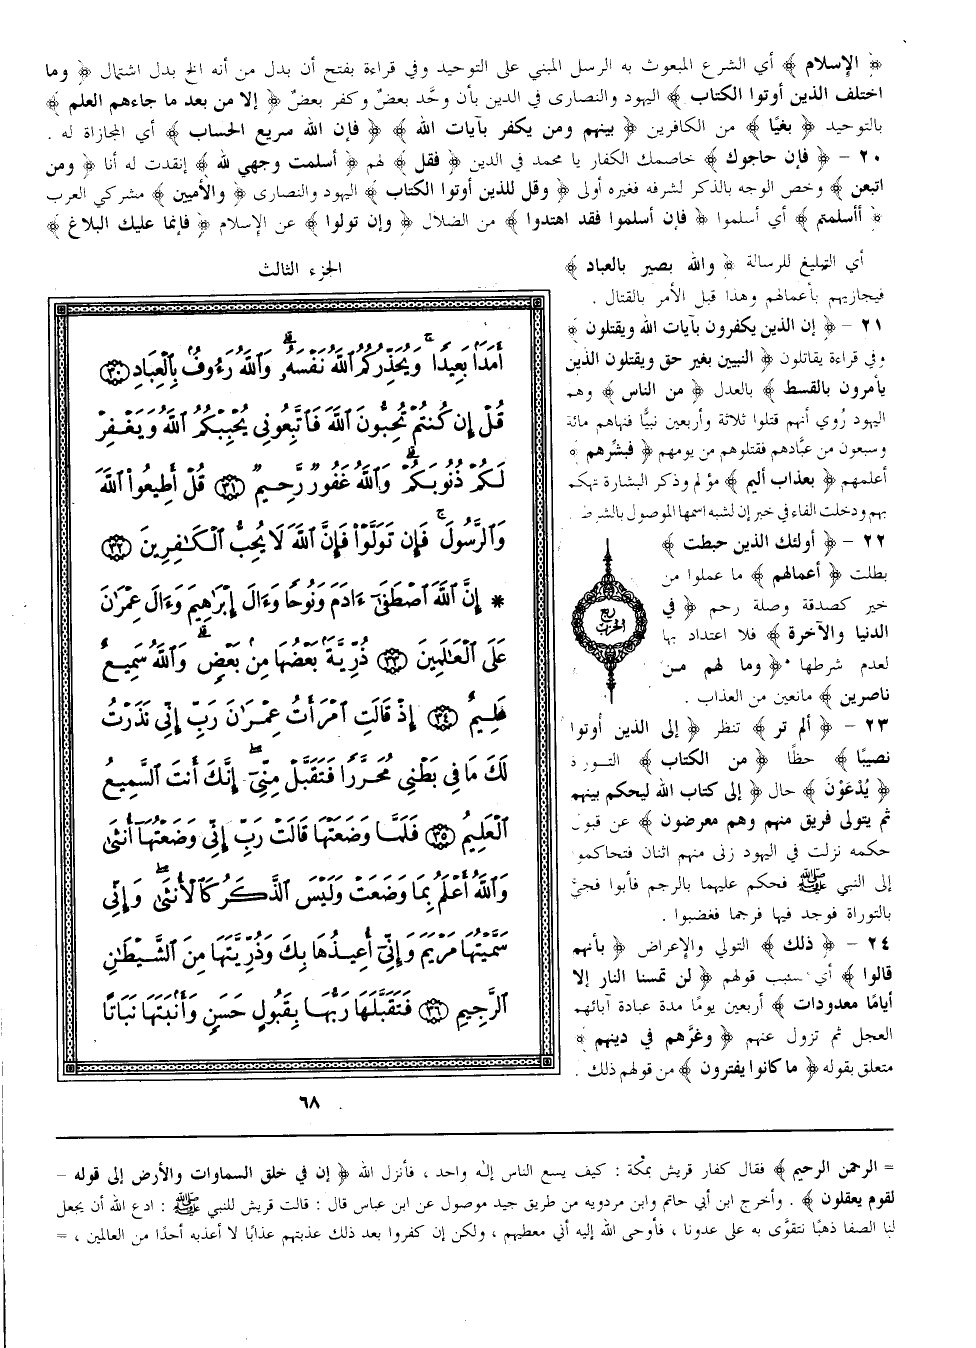 ﴿ الإسلام ﴾ أي الشرع المبعوث به الرسل المبني على التوحيد وفي قراءة بفتح أن بدل من أنه الخ بدل اشتمال ﴿ وما
اختلف الذين أوتوا الكتاب ﴾ اليهود والنصارى في الدين بأن وحَّد بعضٌ وكفر بعضٌ ﴿ إلا من بعد ما جاءهم العلم ﴾
بالتوحيد ﴿ بغيًا ﴾ من الكافرين ﴿ بينهم ومن يكفر بآيات الله ﴾ ﴿ فإن الله سريع الحساب ﴾ أي المجازاة له .
٢٠ - ﴿ فإن حاجوك ﴾ خاصمك الكفار يا محمد في الدين ﴿ فقل ﴾ لهم ﴿ أسلمت وجهي لله ﴾ إنقدت له أنا ﴿ ومن
اتبعن ﴾ وخص الوجه بالذكر لشرفه فغيره أولى ﴿ وقل للذين أوتوا الكتاب ﴾ اليهود والنصارى ﴿ والأميين ﴾ مشركي العرب
﴿ أأسلمتم ﴾ أي أسلموا ﴿ فإن أسلموا فقد اهتدوا ﴾ من الضلال ﴿ وإن تولوا ﴾ عن الإسلام ﴿ فإنما عليك البلاغ ﴾
أي التبليغ للرسالة ﴿ والله بصير بالعباد ﴾
فيجازيهم بأعمالهم وهذا قبل الأمر بالقتال .
٢١ - ﴿ إن الذين يكفرون بآيات الله ويقتلون ﴾
وفي قراءة يقاتلون ﴿ النبيين بغير حق ويقتلون الذين
يأمرون بالقسط ﴾ بالعدل ﴿ من الناس ﴾ وهم
اليهود رُوي أنهم قتلوا ثلاثة وأربعين نبيًّا فنهاهم مائة
وسبعون من عبَّادهم فقتلوهم من يومهم ﴿ فبشِّرهم ﴾
أعلمهم ﴿ بعذاب أليم ﴾ مؤلم وذكر البشارة تهكم
بهم ودخلت الفاء في خبر إن لشبه اسمها الموصول بالشرط .
٢٢ - ﴿ أولئك الذين حبطت ﴾
بطلت ﴿ أعمالهم ﴾ ما عملوا من
خير كصدقة وصلة رحم ﴿ في
الدنيا والآخرة ﴾ فلا اعتداد بها
لعدم شرطها ﴿ وما لهم من
ناصرين ﴾ مانعين من العذاب .
٢٣ - ﴿ ألم تر ﴾ تنظر ﴿ إلى الذين أوتوا
نصيبًا ﴾ حظًا ﴿ من الكتاب ﴾ التوراة
﴿ يُدْعَوْن ﴾ حال ﴿ إلى كتاب الله ليحكم بينهم
ثم يتولى فريق منهم وهم معرضون ﴾ عن قبول
حكمه نزلت في اليهود زنى منهم اثنان فتحاكموا
إلى النبي ﷺ فحكم عليهما بالرجم فأبوا فجيَّ
بالتوراة فوجد فيها فرجما فغضبوا .
٢٤ - ﴿ ذلك ﴾ التولي والإعراض ﴿ بأنهم
قالوا ﴾ أي بسبب قولهم ﴿ لن تمسنا النار إلا
أيامًا معدودات ﴾ أربعين يومًا مدة عبادة آبائهم
العجل ثم تزول عنهم ﴿ وغرَّهم في دينهم ﴾
متعلق بقوله ﴿ ما كانوا يفترون ﴾ من قولهم ذلك .
ربع
الحزب
الجزء الثالث
أَمَدَۢا بَعِيدٗاۗ وَيُحَذِّرُكُمُ ٱللَّهُ نَفۡسَهُۥۗ وَٱللَّهُ رَءُوفُۢ بِٱلۡعِبَادِ ٣٠
قُلۡ إِن كُنتُمۡ تُحِبُّونَ ٱللَّهَ فَٱتَّبِعُونِي يُحۡبِبۡكُمُ ٱللَّهُ وَيَغۡفِرۡ
لَكُمۡ ذُنُوبَكُمۡۗ وَٱللَّهُ غَفُورٞ رَّحِيمٞ ٣١ قُلۡ أَطِيعُواْ ٱللَّهَ
وَٱلرَّسُولَۖ فَإِن تَوَلَّوۡاْ فَإِنَّ ٱللَّهَ لَا يُحِبُّ ٱلۡكَٰفِرِينَ ٣٢
* إِنَّ ٱللَّهَ ٱصۡطَفَىٰٓ ءَادَمَ وَنُوحٗا وَءَالَ إِبۡرَٰهِيمَ وَءَالَ عِمۡرَٰنَ
عَلَى ٱلۡعَٰلَمِينَ ٣٣ ذُرِّيَّةَۢ بَعۡضُهَا مِنۢ بَعۡضٖۗ وَٱللَّهُ سَمِيعٌ
عَلِيمٌ ٣٤ إِذۡ قَالَتِ ٱمۡرَأَتُ عِمۡرَٰنَ رَبِّ إِنِّي نَذَرۡتُ
لَكَ مَا فِي بَطۡنِي مُحَرَّرٗا فَتَقَبَّلۡ مِنِّيٓۖ إِنَّكَ أَنتَ ٱلسَّمِيعُ
ٱلۡعَلِيمُ ٣٥ فَلَمَّا وَضَعَتۡهَا قَالَتۡ رَبِّ إِنِّي وَضَعۡتُهَآ أُنثَىٰ
وَٱللَّهُ أَعۡلَمُ بِمَا وَضَعَتۡ وَلَيۡسَ ٱلذَّكَرُ كَٱلۡأُنثَىٰۖ وَإِنِّي
سَمَّيۡتُهَا مَرۡيَمَ وَإِنِّيٓ أُعِيذُهَا بِكَ وَذُرِّيَّتَهَا مِنَ ٱلشَّيۡطَٰنِ
ٱلرَّجِيمِ ٣٦ فَتَقَبَّلَهَا رَبُّهَا بِقَبُولٍ حَسَنٖ وَأَنۢبَتَهَا نَبَاتًا
٦٨
= الرحمن الرحيم ﴾ فقال كفار قريش بمكة : كيف يسع الناس إلٰه واحد ، فأنزل الله ﴿ إن في خلق السماوات والأرض إلى قوله -
لقوم يعقلون ﴾ . وأخرج ابن أبي حاتم وابن مردويه من طريق جيد موصول عن ابن عباس قال : قالت قريش للنبي ﷺ : ادع الله أن يجعل
لنا الصفا ذهبًا نتقوَّى به على عدونا ، فأوحى الله إليه أني معطيهم ، ولكن إن كفروا بعد ذلك عذبتهم عذابًا لا أعذبه أحدًا من العالمين ، =